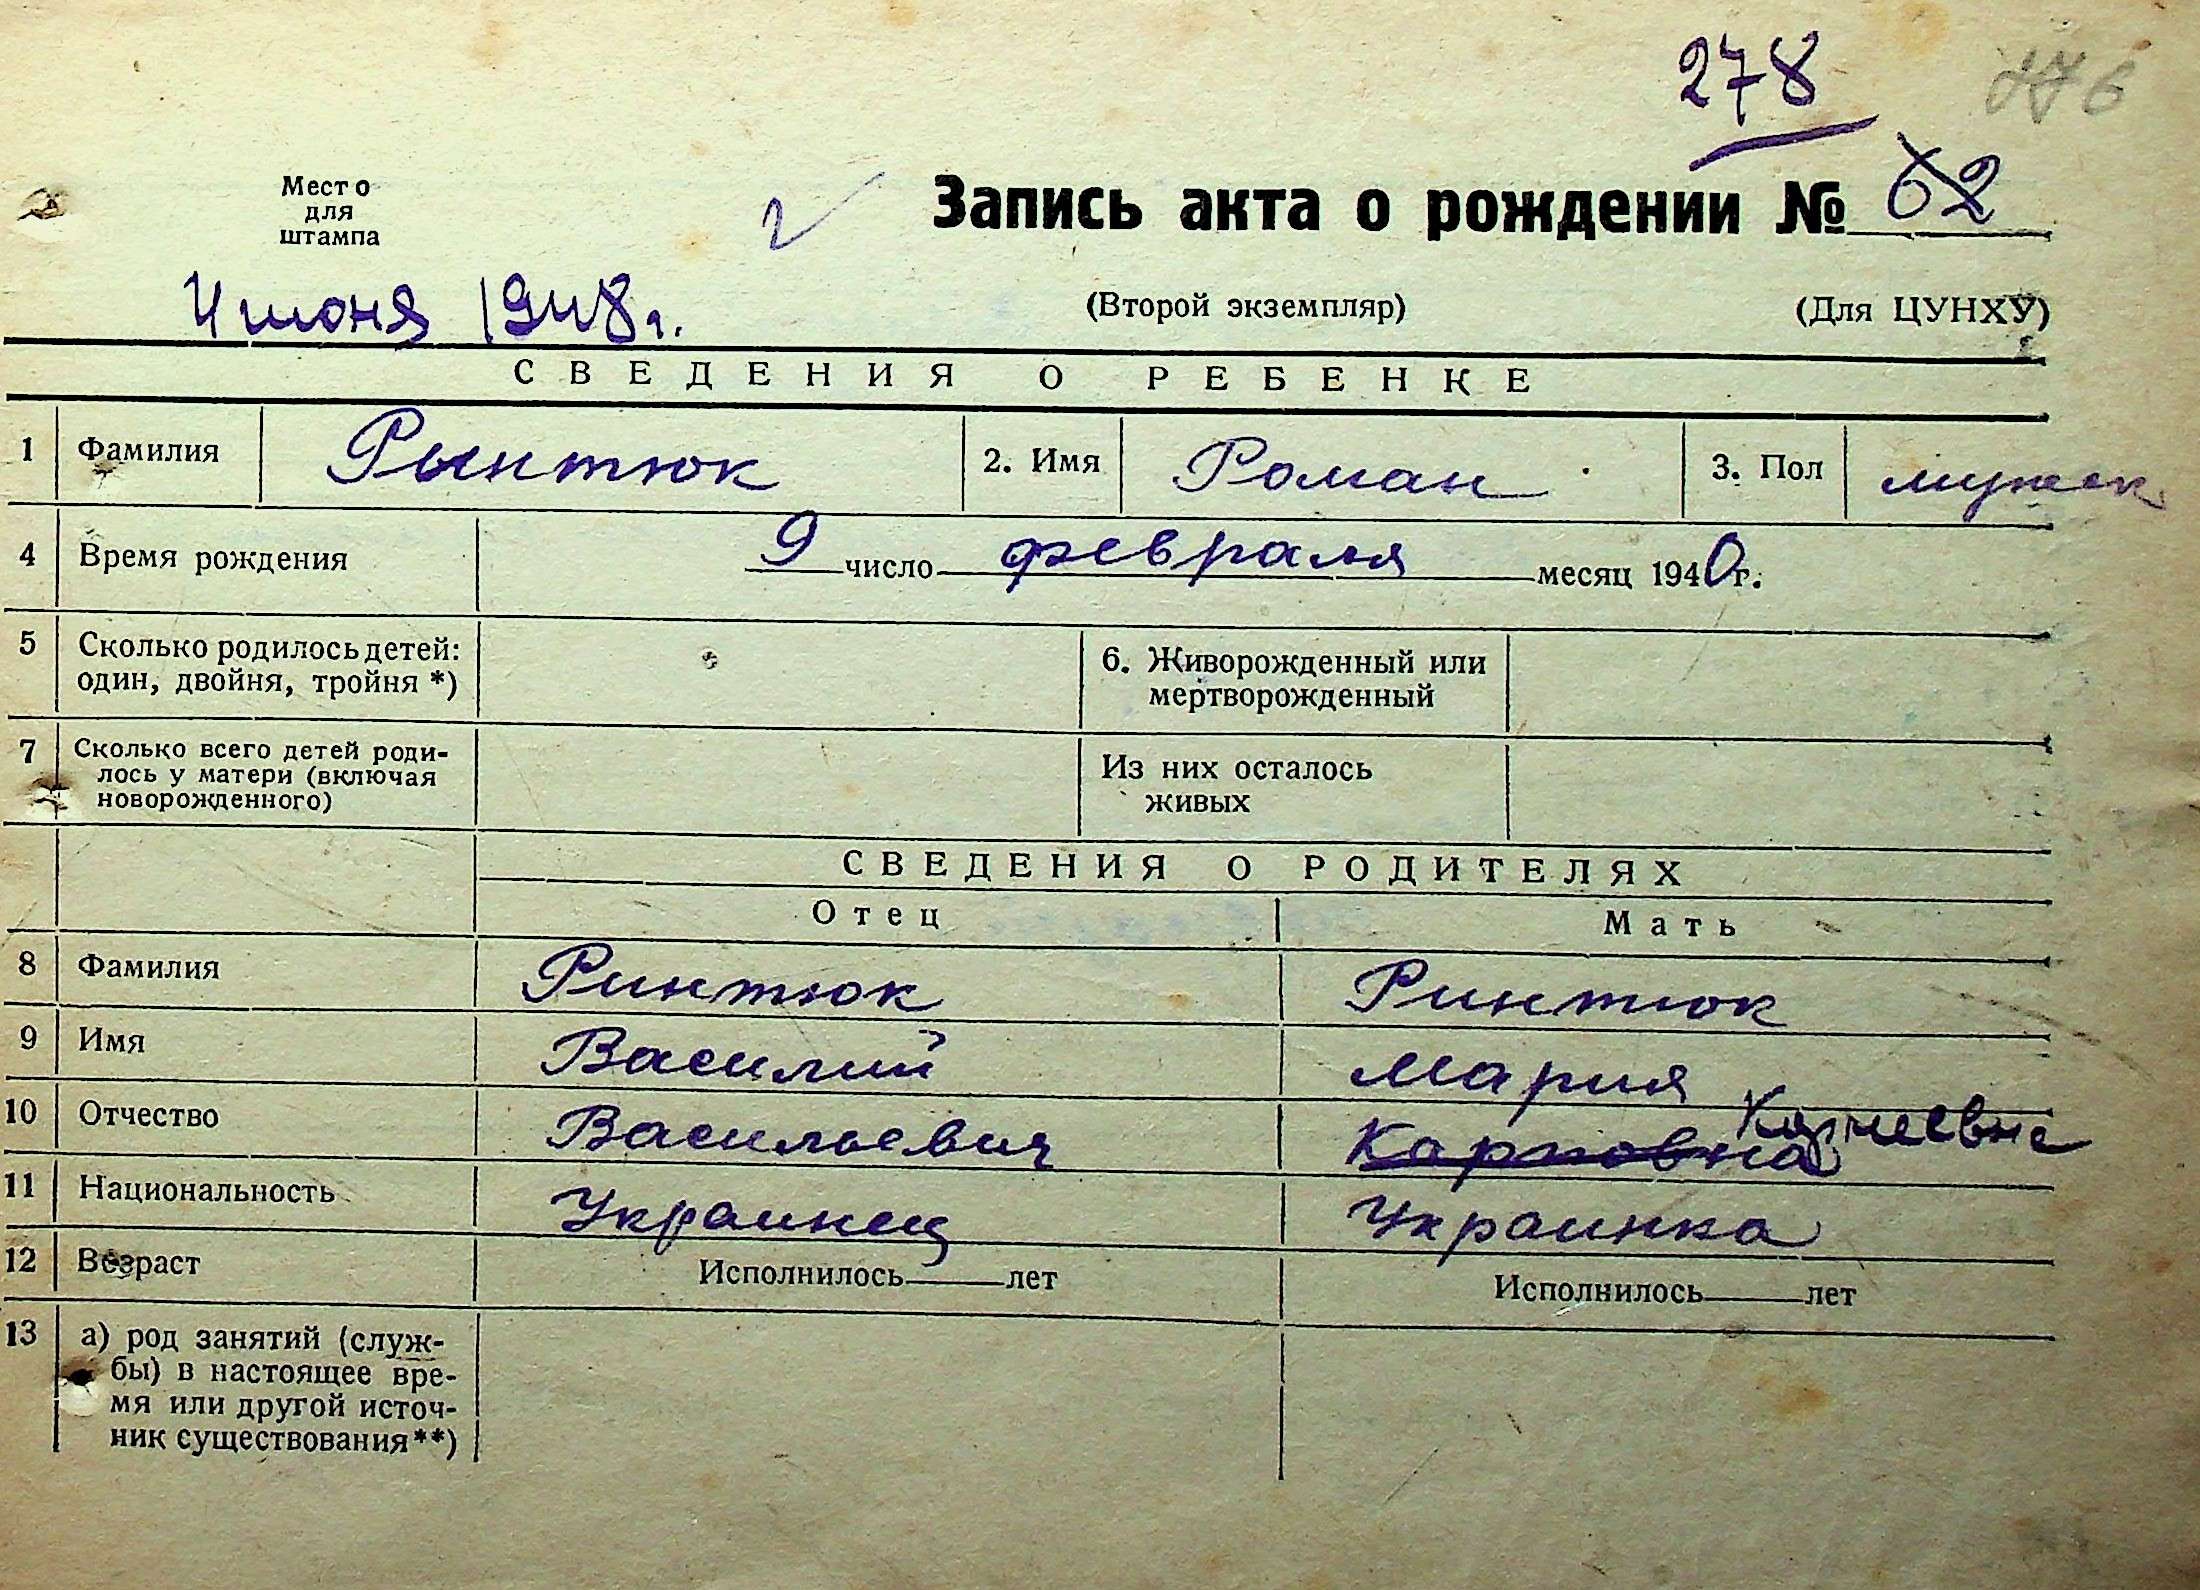 278 276
Место
для
штампа
Запись акта о рождении № 62
4 июня 1948 г.
(Второй экземпляр) (Для ЦУНХУ)
СВЕДЕНИЯ О РЕБЕНКЕ
1 Фамилия Рынтюк 2. Имя Роман 3. Пол мужск
4 Время рождения 9 число февраля месяц 1940 г.
5 Сколько родилось детей:
один, двойня, тройня *)
6. Живорожденный или
мертворожденный
7 Сколько всего детей роди-
лось у матери (включая
новорожденного)
Из них осталось
живых
СВЕДЕНИЯ О РОДИТЕЛЯХ
Отец Мать
8 Фамилия Ринтюк Ринтюк
9 Имя Василий Мария
10 Отчество Васильевич Карповна Корнеевна
11 Национальность Украинец Украинка
12 Возраст Исполнилось лет Исполнилось лет
13 а) род занятий (служ-
бы) в настоящее вре-
мя или другой источ-
ник существования**)